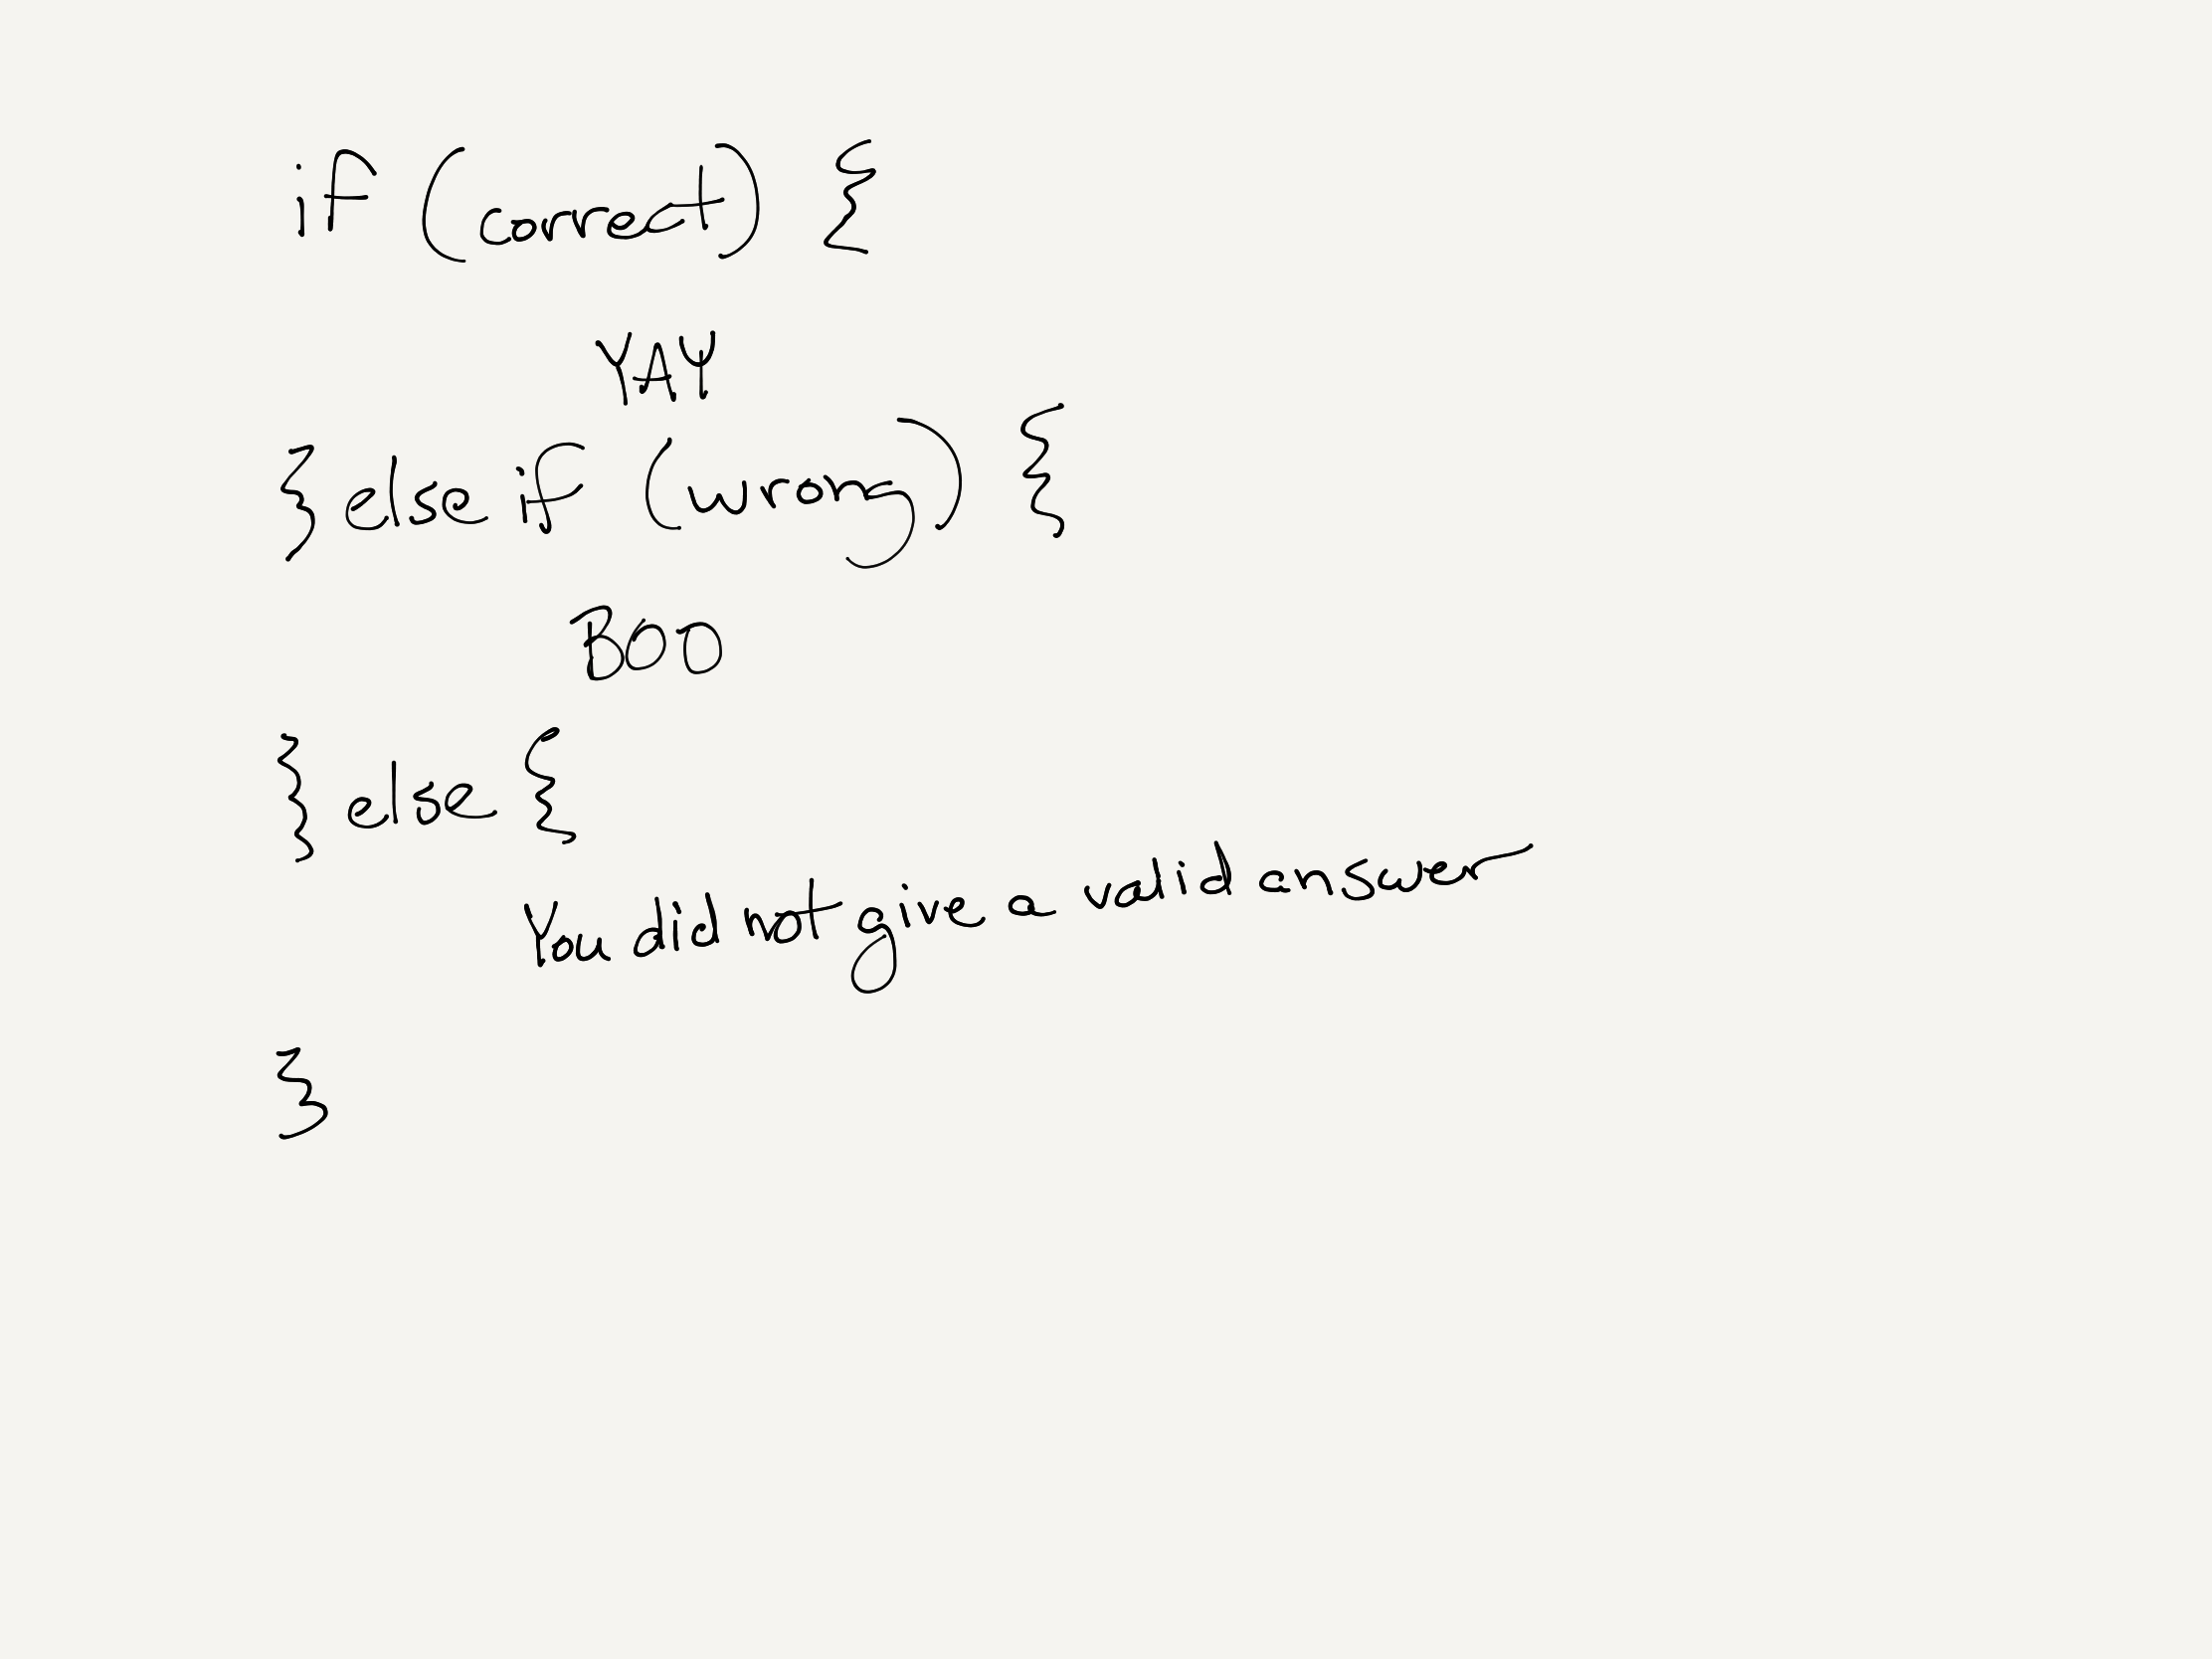 if (correct) {
YAY
} else if (wrong) {
BOO
} else {
You did not give a valid answer
}